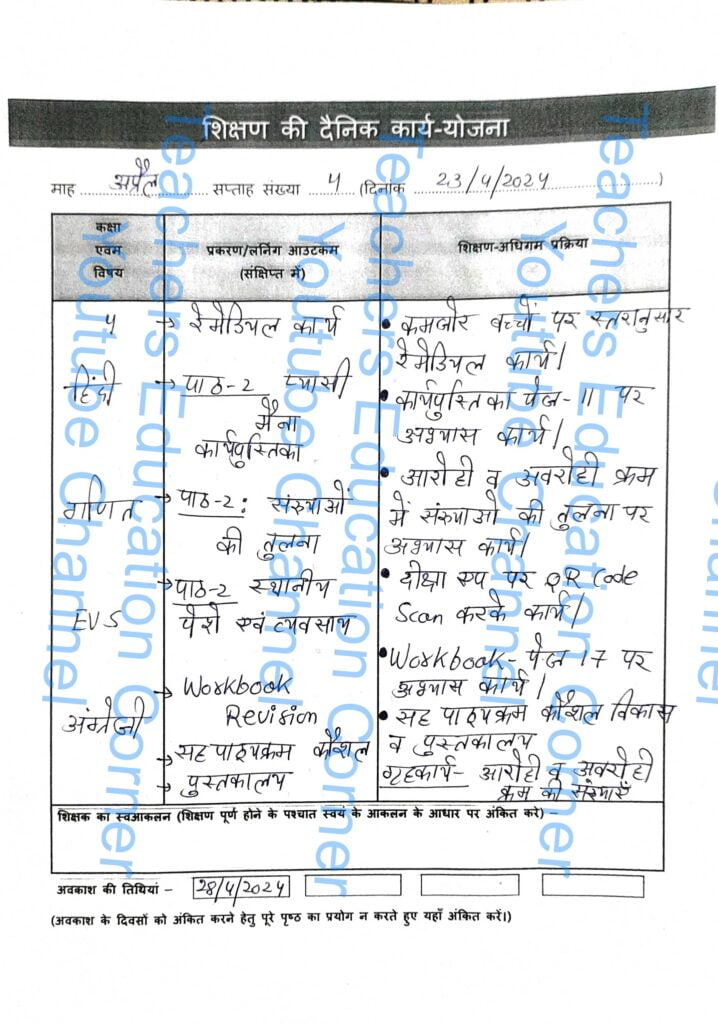 शिक्षण की दैनिक कार्य-योजना
माह अप्रैल सप्ताह संख्या 4 (दिनांक 23/4/2024)
कक्षा एवम विषय
प्रकरण/लर्निंग आउटकम (संक्षिप्त में)
शिक्षण-अधिगम प्रक्रिया
4
→ रेमेडियल कार्य
• कमजोर बच्चों पर स्तरानुसार
रेमेडियल कार्य।
हिंदी
→ पाठ-2 प्यासी
मैना
कार्यपुस्तिका
• कार्यपुस्तिका पेज-11 पर
अभ्यास कार्य।
गणित
→ पाठ-2: संख्याओं
की तुलना
• आरोही व अवरोही क्रम
में संख्याओं की तुलना पर
अभ्यास कार्य।
EVS
→ पाठ-2 स्थानीय
पेशे एवं व्यवसाय
• दीक्षा एप पर QR Code
Scan करके कार्य।
अंग्रेजी
→ Workbook
Revision
• Workbook - पेज 17 पर
अभ्यास कार्य।
→ सह पाठ्यक्रम कौशल
→ पुस्तकालय
• सह पाठ्यक्रम कौशल विकास
व पुस्तकालय
गृहकार्य- आरोही व अवरोही
क्रम की संख्याएँ
शिक्षक का स्वआकलन (शिक्षण पूर्ण होने के पश्चात स्वयं के आकलन के आधार पर अंकित करे) –
अवकाश की तिथियां – 28/4/2024
(अवकाश के दिवसों को अंकित करने हेतु पूरे पृष्ठ का प्रयोग न करते हुए यहाँ अंकित करें।)
Teachers Education Corner
Youtube Channel
Teachers Education Corner
Youtube Channel
Teachers Education Corner
Channel